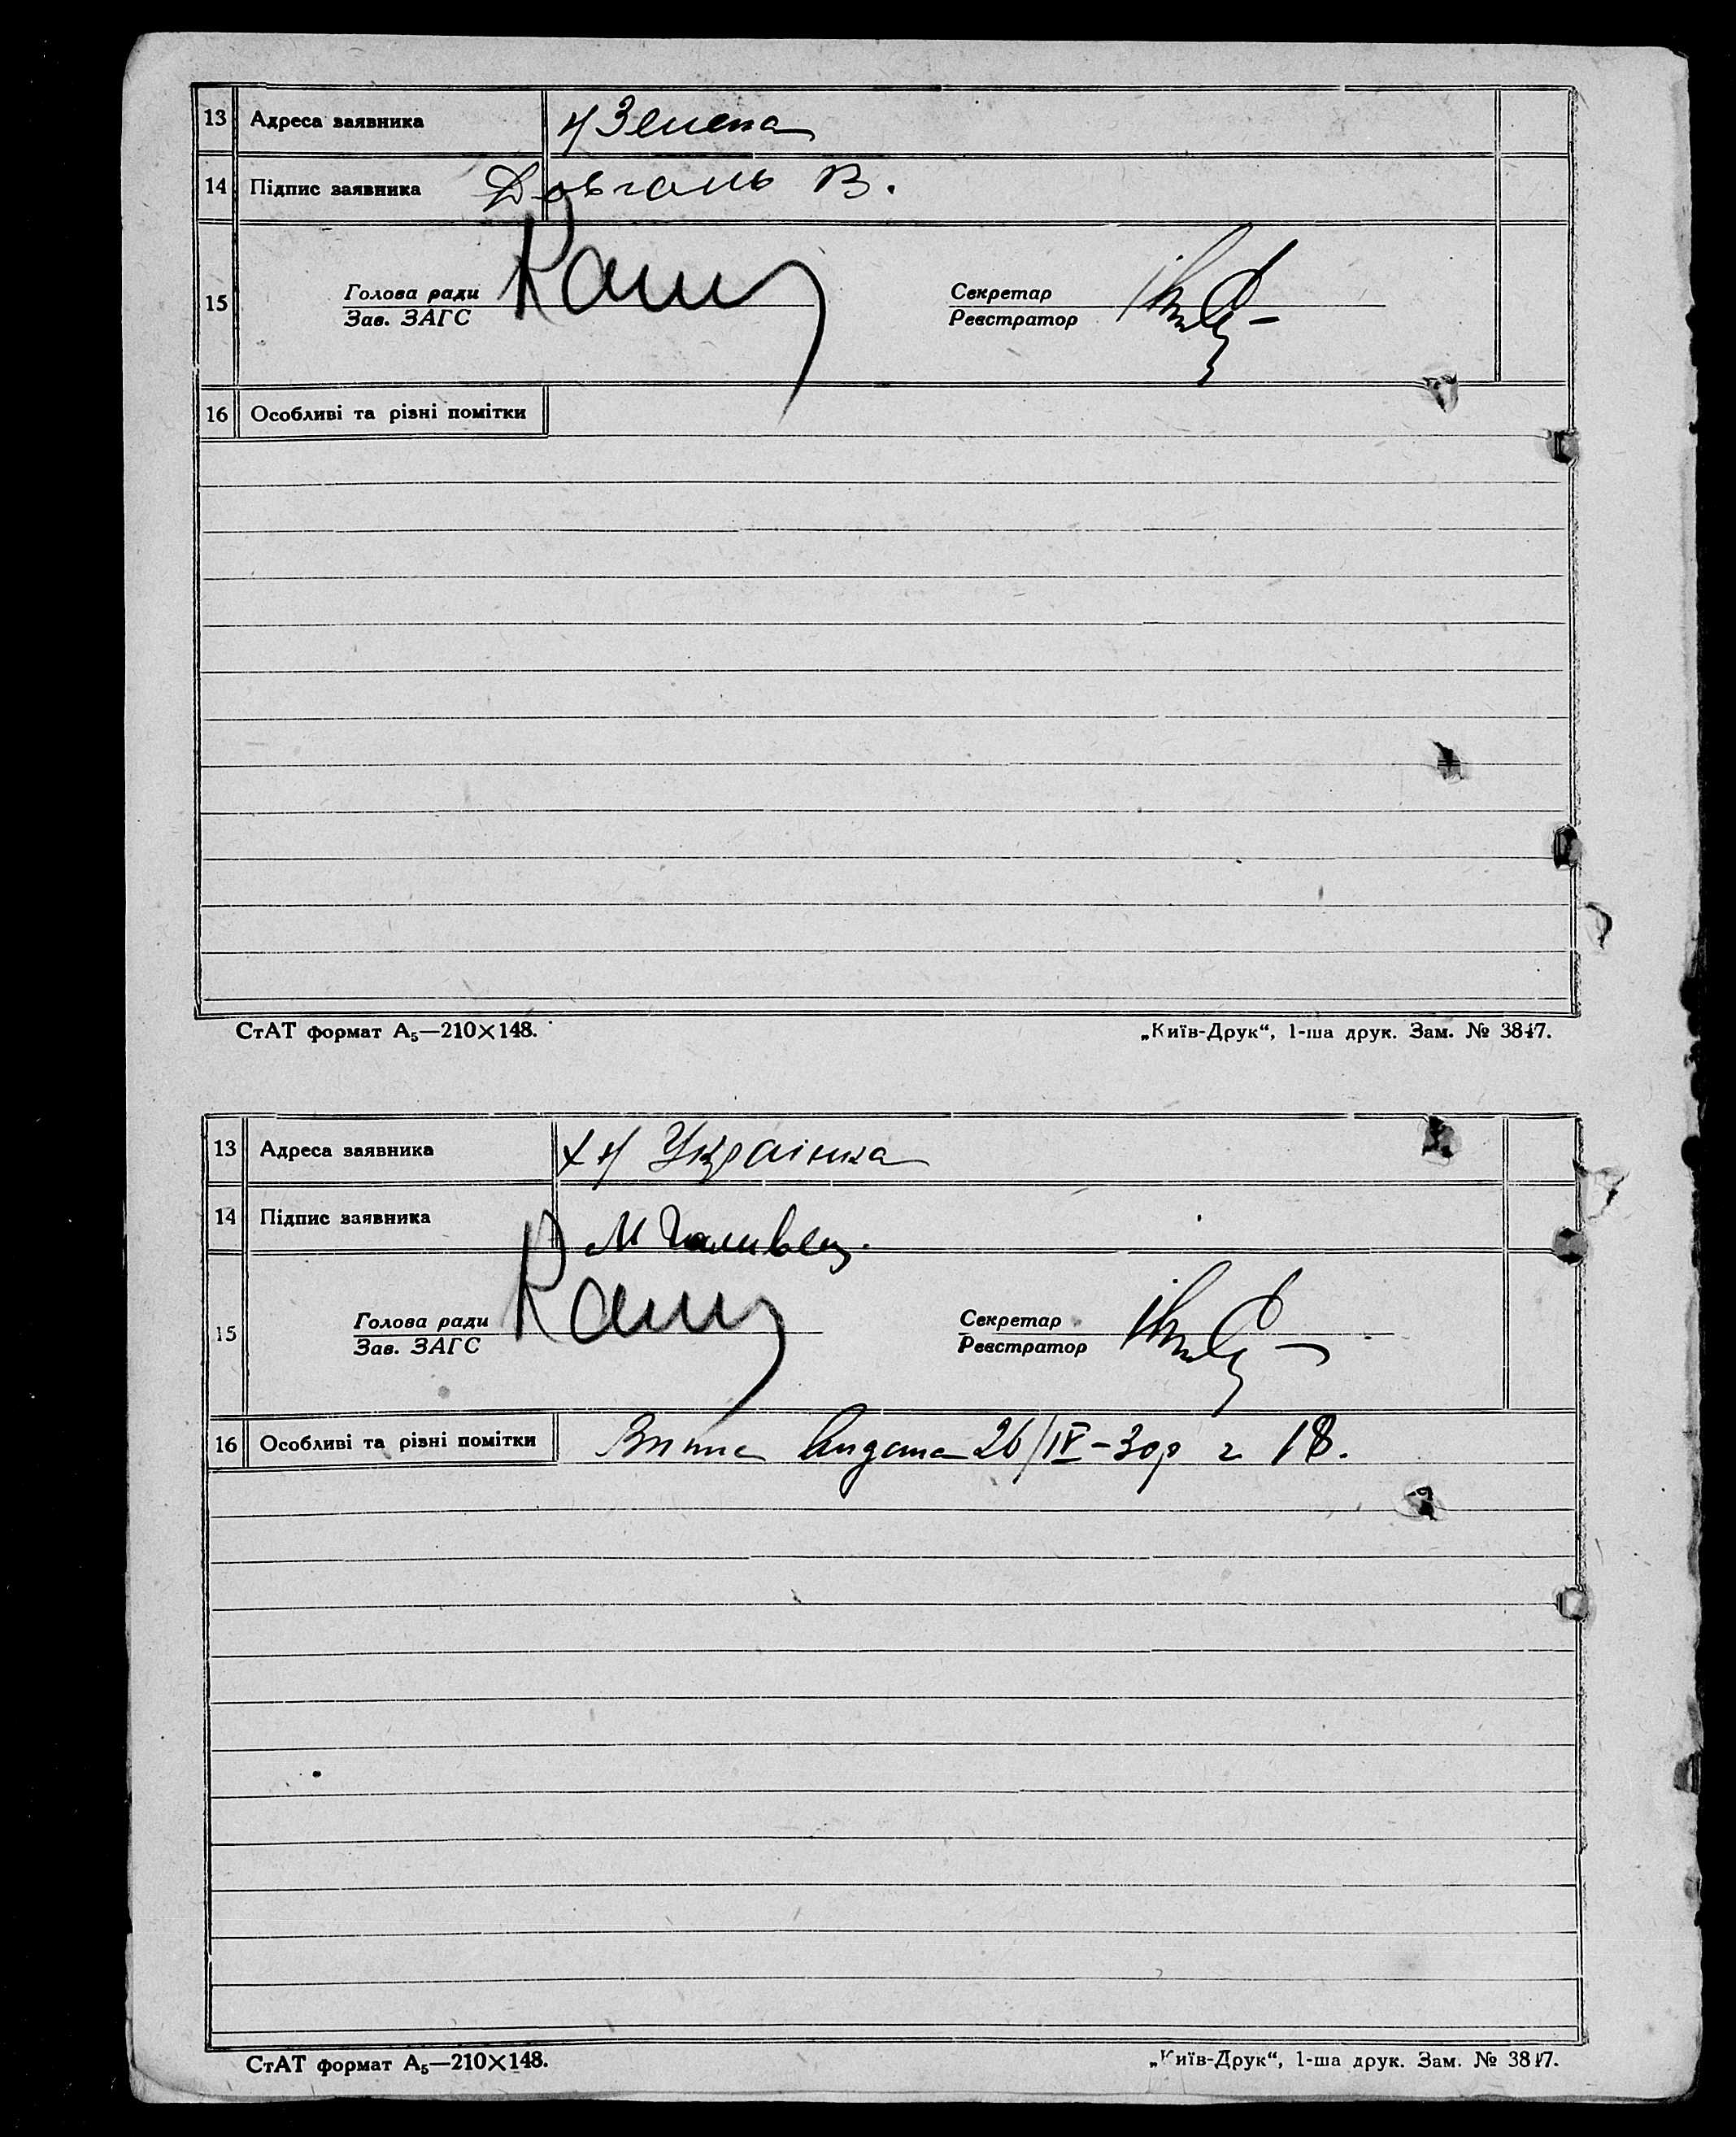 13 Адреса заявника Зелена
14 Підпис заявника Довгаль В.
15 Голова ради Секретар
Зав. ЗАГС Реєстратор
16 Особливі та різні помітки
СтАТ формат А₅—210×148. „Київ-Друк“, 1-ша друк. Зам. № 3847.
13 Адреса заявника Українка
14 Підпис заявника М
15 Голова ради Секретар
Зав. ЗАГС Реєстратор
16 Особливі та різні помітки 26/IV-30р 18.
СтАТ формат А₅—210×148. „Київ-Друк“, 1-ша друк. Зам. № 3847.